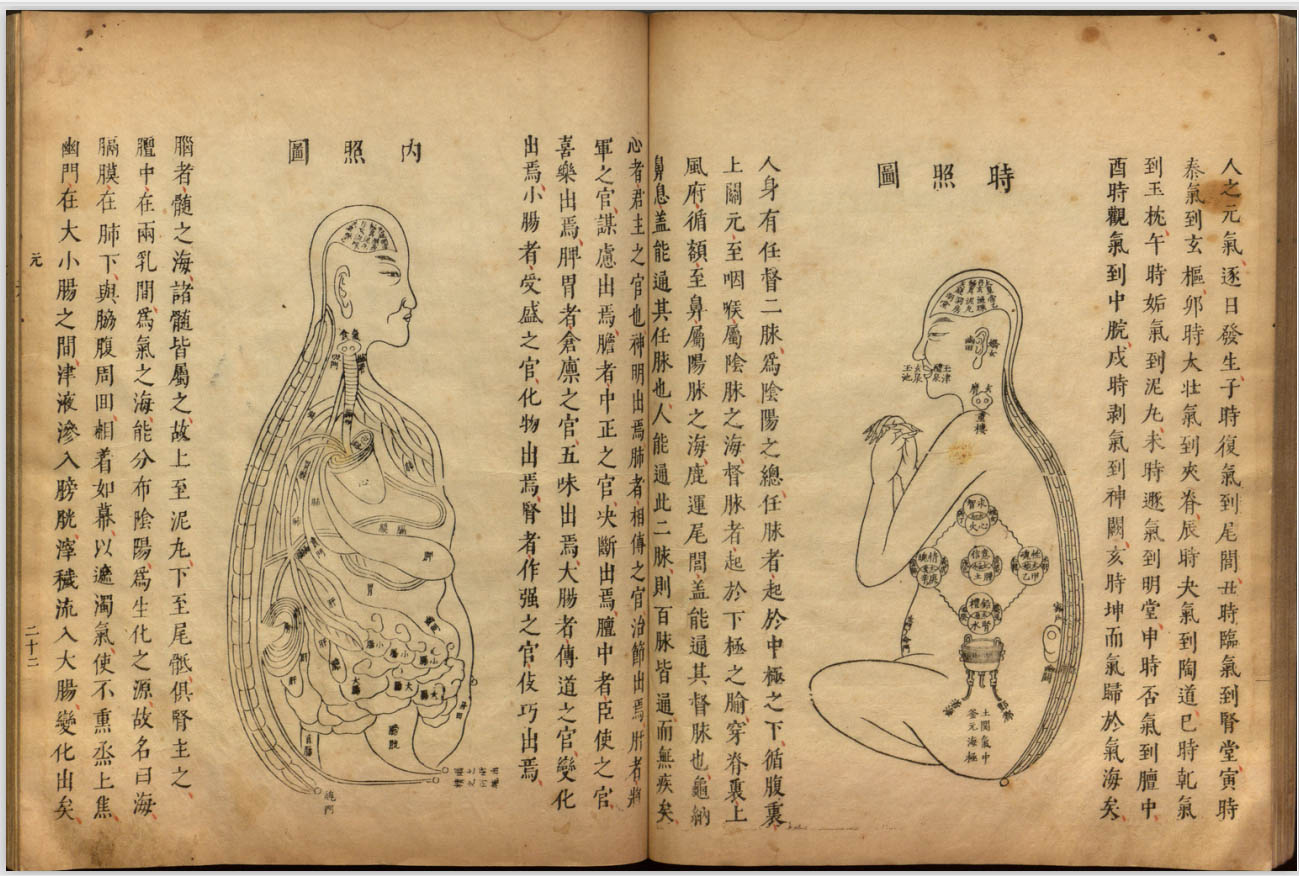 人之元氣逐日發生子時復氣到尾閭丑時臨氣到腎堂寅時
泰氣到玄樞卯時大壯氣到夾脊辰時夬氣到陶道巳時乾氣
到玉枕午時姤氣到泥丸未時遯氣到明堂申時否氣到膻中
酉時觀氣到中脘戌時剥氣到神闕亥時坤而氣歸於氣海矣
時照圖
人身有任督二脉為陰陽之總任脉者起於中極之下循腹裏
上關元至咽喉屬陰脉之海督脉者起於下極之腧穿脊裏上
風府循額至鼻屬陽脉之海鹿運尾閭盖能通其督脉也龜納
鼻息盖能通其任脉也人能通此二脉則百脉皆通而無疾矣
心者君主之官也神明出焉肺者相傳之官治節出焉肝者將
軍之官謀慮出焉膽者中正之官决斷出焉膻中者臣使之官
喜樂出焉脾胃者倉廪之官五味出焉大腸者傳道之官變化
出焉小腸者受盛之官化物出焉腎者作强之官伎巧出焉
內照圖
腦者髓之海諸髓皆屬之故上至泥丸下至尾骶俱腎主之
膻中在兩乳間為氣之海能分布陰陽為生化之源故名曰海
膈膜在肺下與脇腹周回相着如幕以遮濁氣使不熏烝上焦
幽門在大小腸之間津液滲入膀胱滓穢流入大腸變化出矣
元
二十二
重樓
土關氣中
釜元海極
心
胃
脾
小腸
大腸
膀胱
直腸